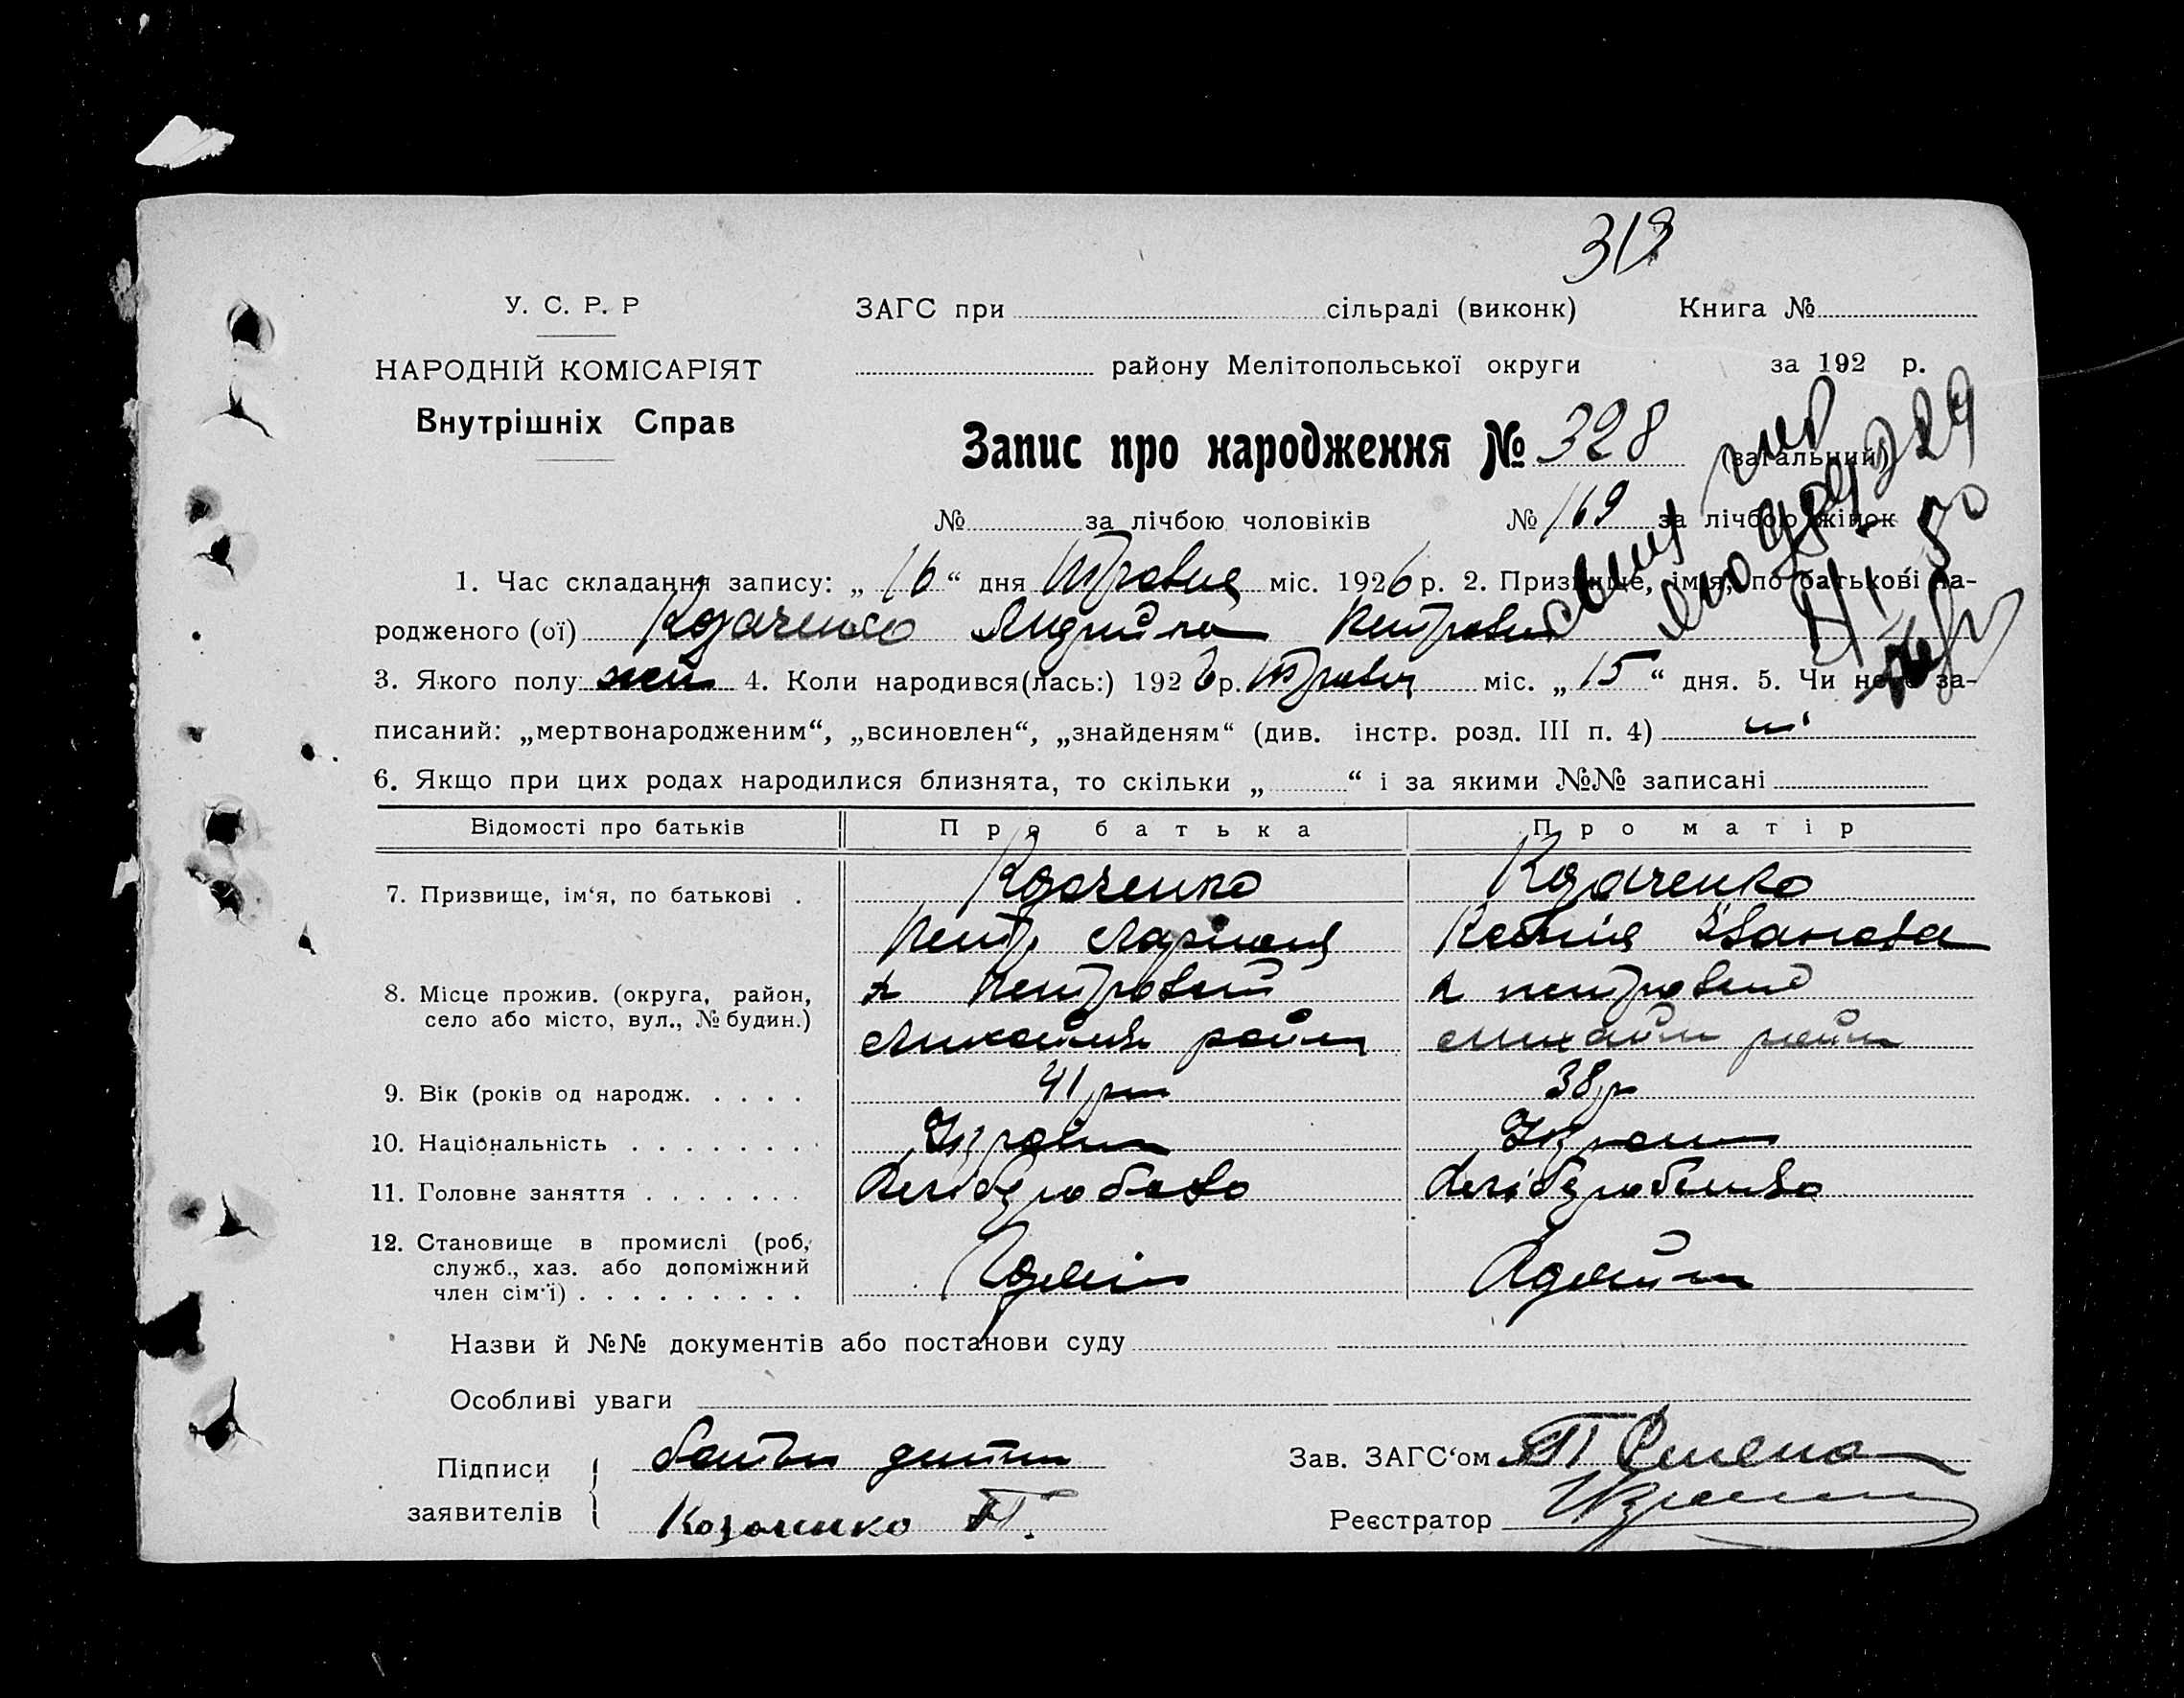 313
У. С. Р. Р
ЗАГС при сільраді (виконк) Книга №
НАРОДНІЙ КОМІСАРІЯТ
району Мелітопольської округи за 192 р.
Внутрішніх Справ
Запис про народження № 328 (загальний)
№ за лічбою чоловіків № 169 за лічбою жінок
1. Час складання запису: „ 16 “ дня Травня міс. 1926 р. 2. Призвище, імя, по батькові на-
родженого (ої) Козаченко Петровна
3. Якого полу жен 4. Коли народився(лась:) 1926 р. Травня міс. „ 15 “ дня. 5. Чи не за-
писаний: „мертвонародженим“, „всиновлен“, „знайденям“ (див. інстр. розд. III п. 4) ні
6. Якщо при цих родах народилися близнята, то скільки „ “ і за якими №№ записані
Відомості про батьків Про батька Про матір
7. Призвище, ім‘я, по батькові . Козаченко Козаченко
Петр Ларіонов Ксенія Іванова
8. Місце прожив. (округа, район, село або місто, вул., № будин.)
41 38 р
9. Вік (років од народж. . . . .
10. Національність . . . . . . . Україн Україн
11. Головне заняття . . . . . . . Хліборобство Хліборобство
12. Становище в промислі (роб,
служб., хаз. або допоміжний
член сім'ї) . . . . . . . . .
Назви й №№ документів або постанови суду
Особливі уваги
Підписи батьки дитини Зав. ЗАГС‘ом
заявителів Козаченко П. Реєстратор